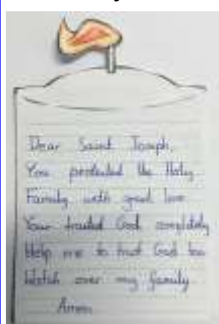 Dear Saint Joseph,
You protected the Holy
Family with great love
Your trusted God completely
Help me to trust God too
Watch over my family
Amen